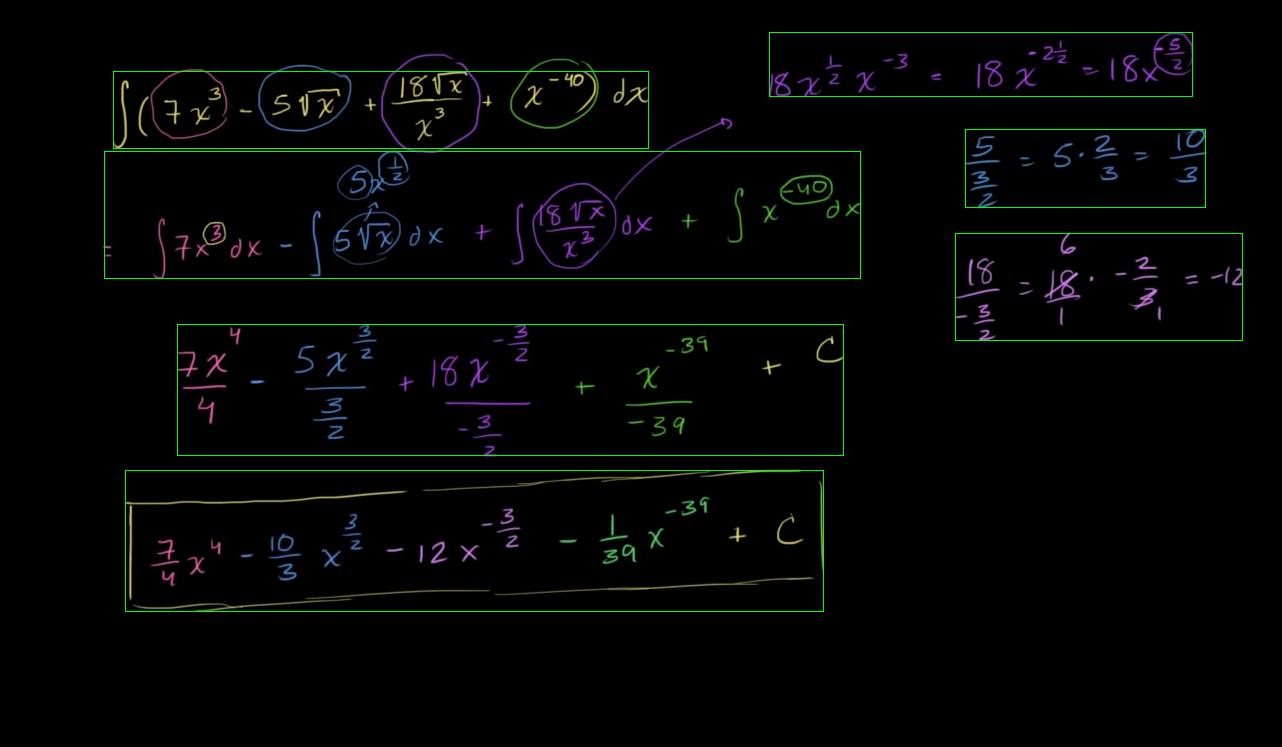 ∫(7x³ - 5√x + 18√x/x³ + x⁻⁴⁰) dx
5x^(1/2)
= ∫7x³ dx - ∫5√x dx + ∫18√x/x³ dx + ∫x⁻⁴⁰ dx
7x⁴/4 - 5x^(3/2)/(3/2) + 18x^(-3/2)/(-3/2) + x⁻³⁹/-39 + C
7/4 x⁴ - 10/3 x^(3/2) - 12x^(-3/2) - 1/39 x⁻³⁹ + C
18x^(1/2) x⁻³ = 18x^(-2 1/2) = 18x^(-5/2)
5/(3/2) = 5 · 2/3 = 10/3
6
18/(-3/2) = 18/1 · -2/3 = -12
1